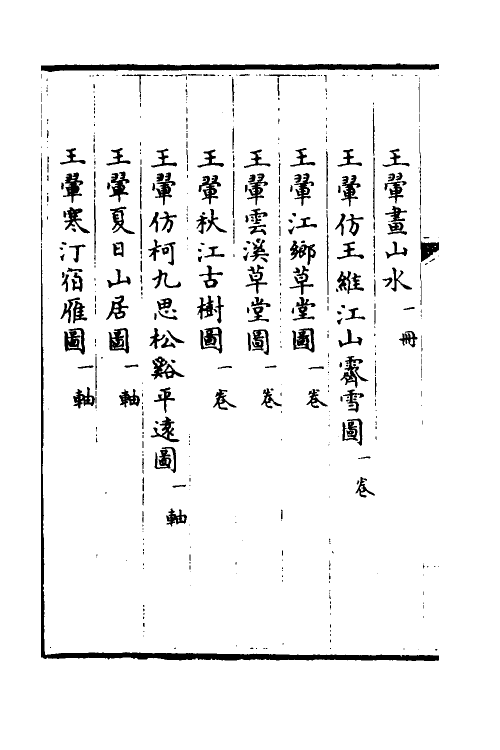 王翬畫山水一冊
王翬仿王維江山霽雪圖一卷
王翬江鄉草堂圖一卷
王翬雲溪草堂圖一卷
王翬秋江古樹圖一卷
王翬仿柯九思松谿平遠圖一軸
王翬夏日山居圖一軸
王翬寒汀宿雁圖一軸